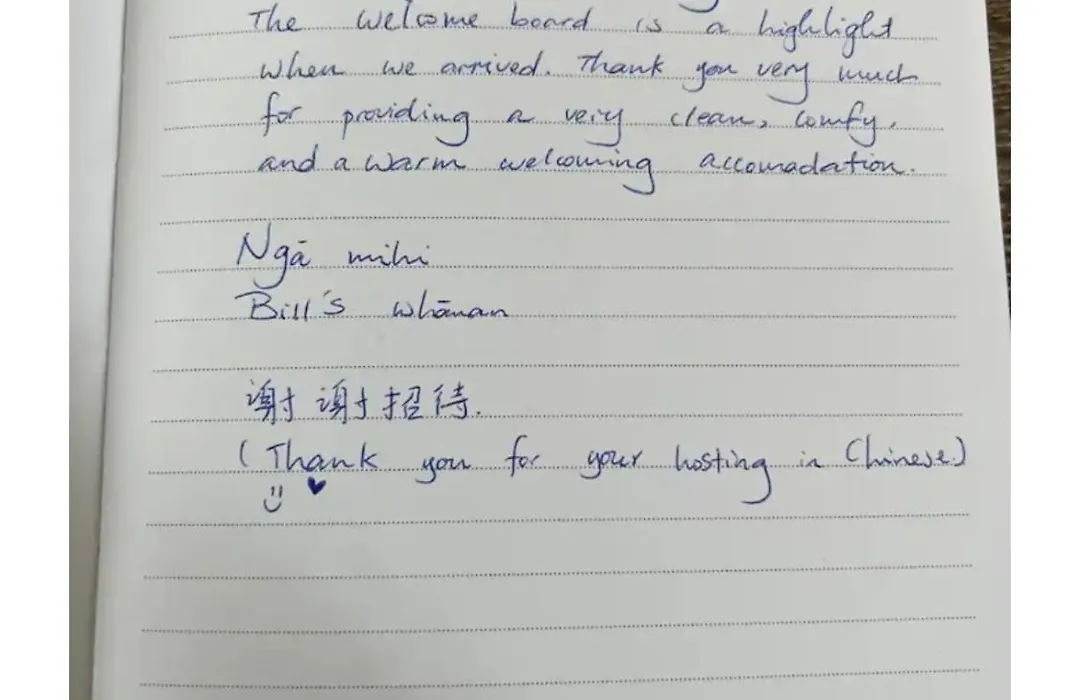 The welcome board is a highlight
when we arrived. Thank you very much
for providing a very clean, comfy,
and a warm welcoming accomadation.
Ngā mihi
Bill's whānan
谢谢招待.
(Thank you for your hosting in Chinese.)